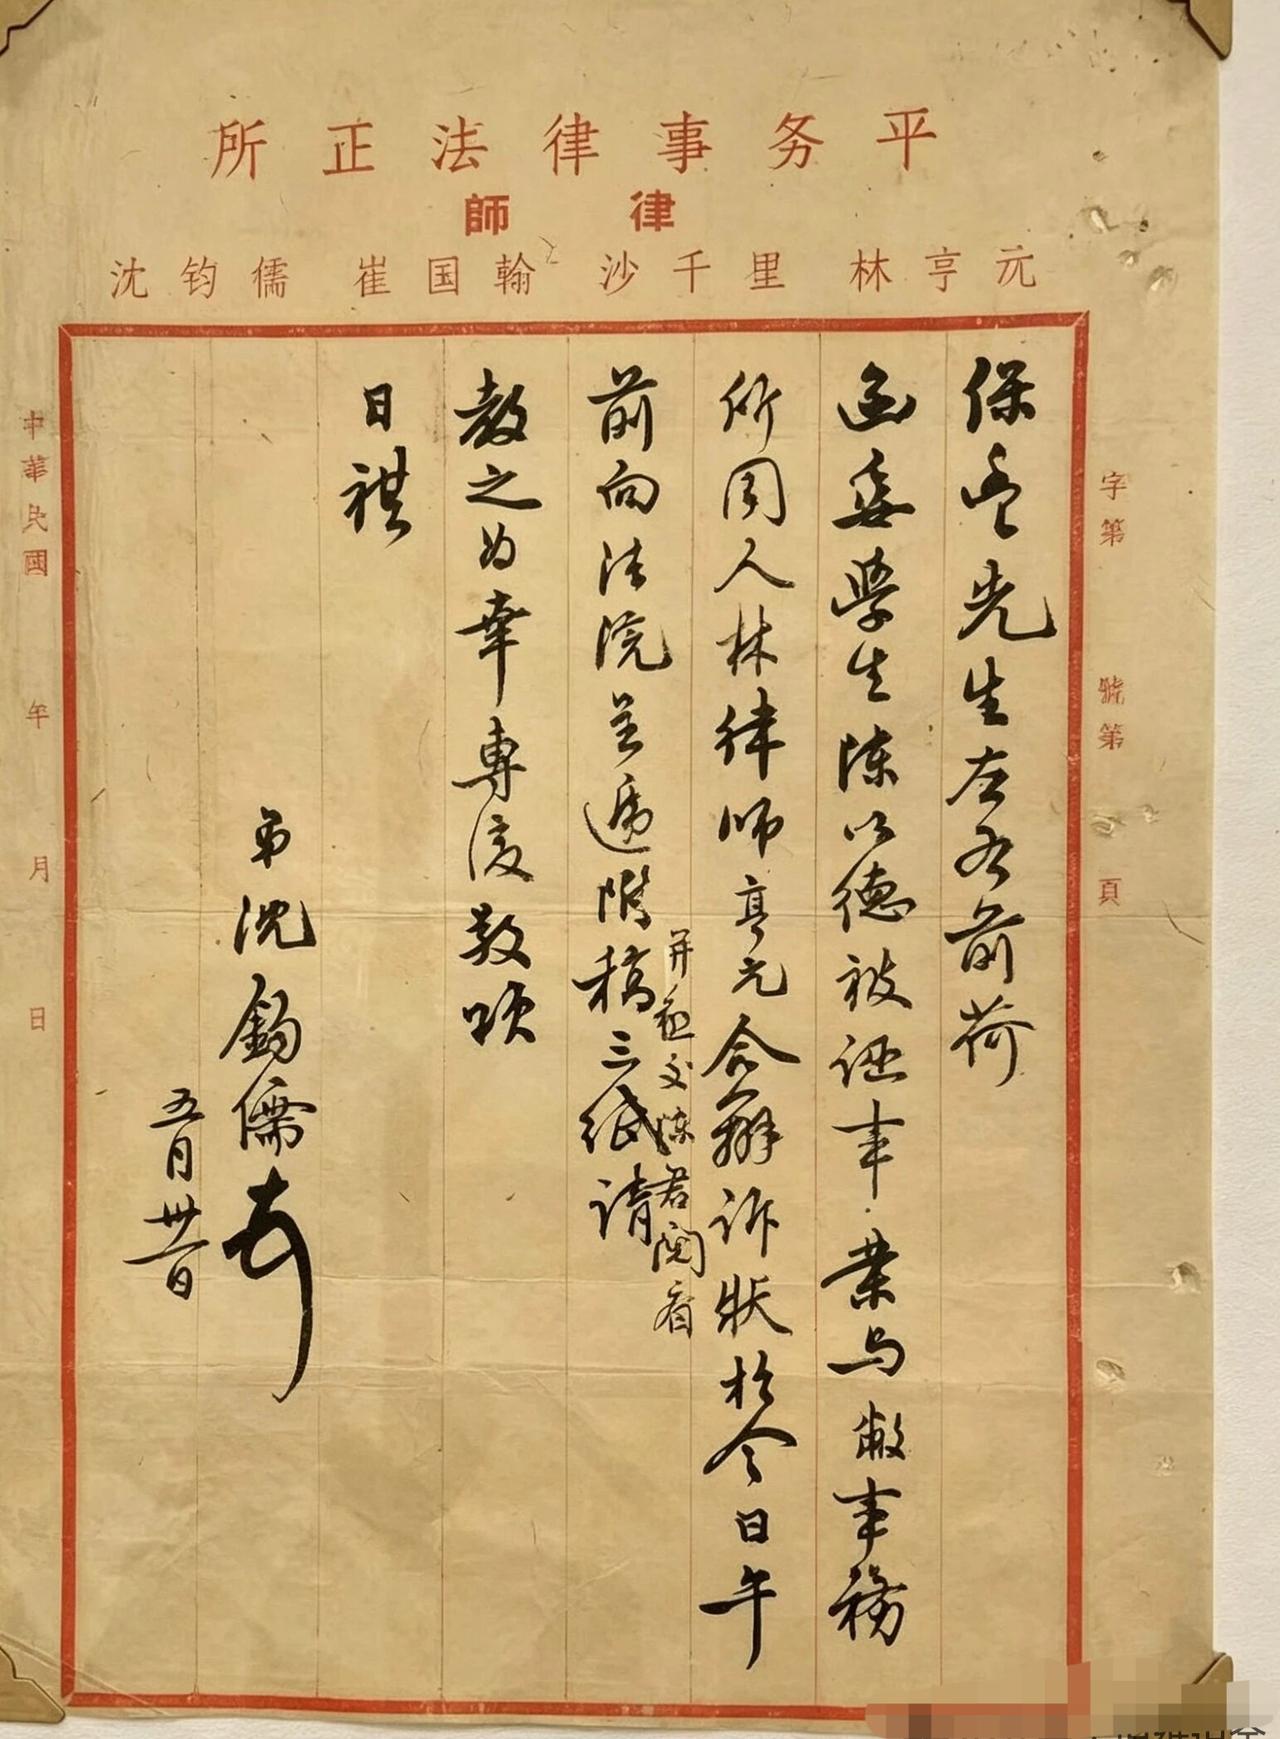 所正法律事务平
師律
沈钧儒 崔国翰 沙千里 林亨元
字第 號第 頁
保 先生左右前荷
函委學生陳以德被诬事業与敝事務
所同人林律师亨元合辦诉狀於今日午
并知交陈君閱看
前向法院呈遞附稿三纸请
教之为幸專復敬颂
日祺
弟沈鈞儒
五月卅一日
中華民國 年 月 日